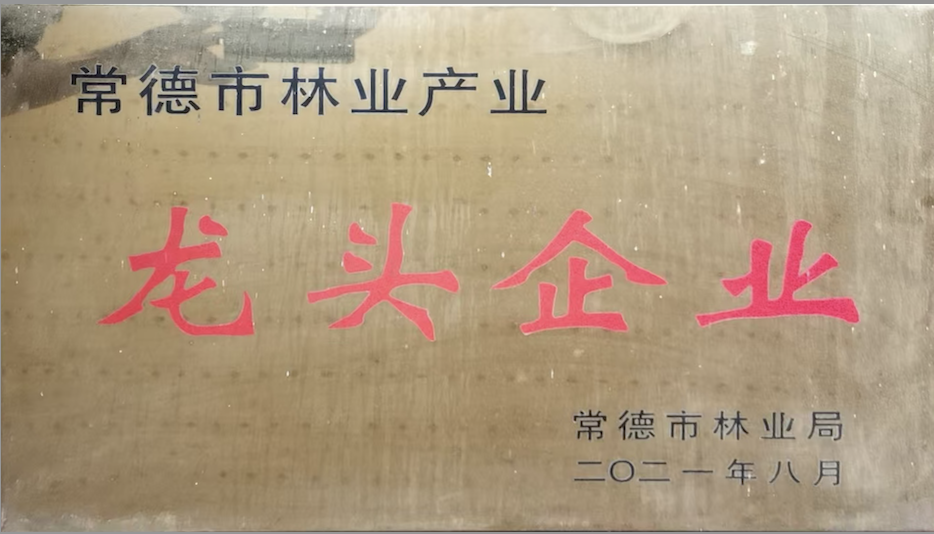 常德市林业产业
龙头企业
常德市林业局
二〇二一年八月